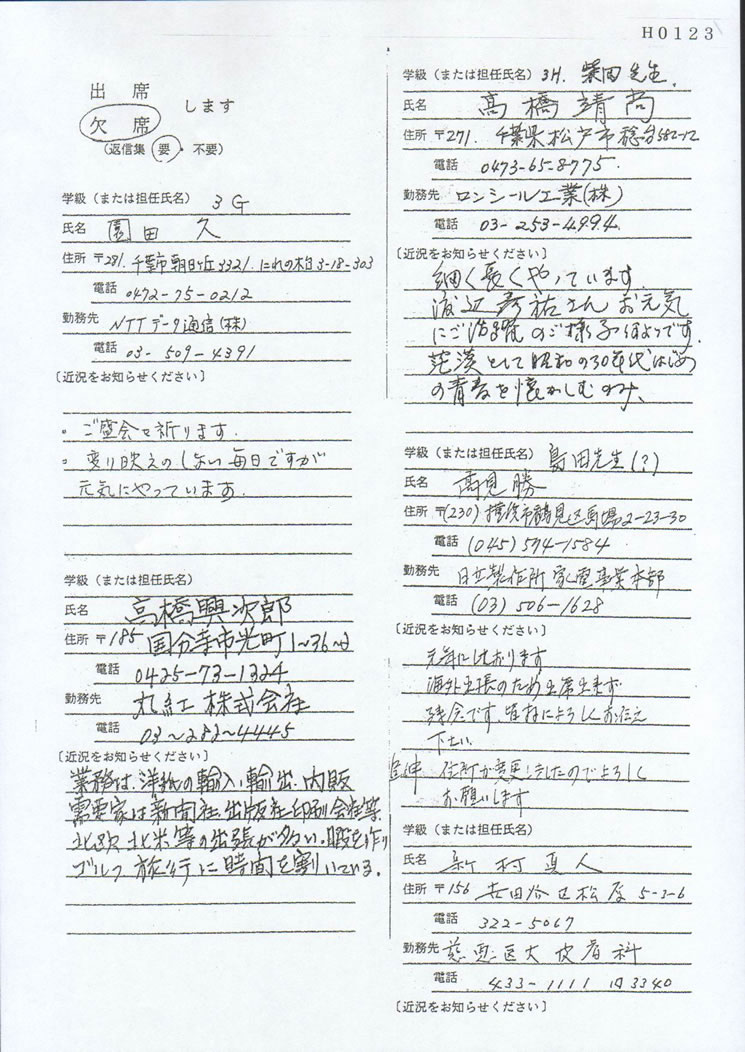 H0123
出席
欠席
します
(返信集 要・不要)
学級(または担任氏名) 3G
氏名 園田 久
住所 〒281. 千葉市朝日ヶ丘3321. にれの木 3-18-303
電話 0472-75-0212
勤務先 NTTデータ通信(株)
電話 03-509-4391
〔近況をお知らせください〕
。ご盛会を祈ります.
。変り映えのしない毎日ですが
元気にやっています.
学級(または担任氏名)
氏名 高橋興次郎
住所 〒185 国分寺市光町1~36~2
電話 0425-73-1324
勤務先 丸紅株式会社
電話 03~282~4445
〔近況をお知らせください〕
業務は、洋紙の輸入、輸出、内販
需要家は新聞社、出版社、印刷会社等.
北欧、北米等の出張が多い、暇を作り
ゴルフ、旅行に時間を割いている.
学級(または担任氏名) 3H. 柴田先生.
氏名 高橋靖尚
住所 〒271. 千葉県松戸市稔台582-12
電話 0473-65-8775.
勤務先 ロンシール工業(株)
電話 03-253-4994.
〔近況をお知らせください〕
細く長くやっています.
渡辺彦祐さん お元気
にご活躍のご様子 です.
茫漠として昭和の30年代はじめ
の青春を懐かしむのみ、
学級(または担任氏名) 島田先生(?)
氏名 高見 勝
住所 〒(230) 横浜市鶴見区馬場2-23-30
電話 (045)574-1584
勤務先 日立製作所 家電事業本部
電話 (03)506-1628
〔近況をお知らせください〕
元気にしております
海外出張のため出席出来ず
残念です.皆様によろしくお伝え
下さい.
追伸 住所が変更しましたのでよろしく
お願いします
学級(または担任氏名)
氏名 新村真人
住所 〒156 世田谷区松原 5-3-6
電話 322-5067
勤務先 慈恵医大 皮膚科
電話 433-1111 内3340
〔近況をお知らせください〕